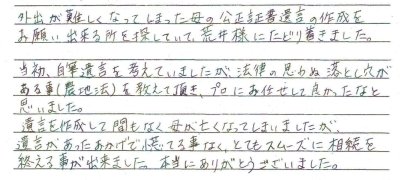 外出が難しくなってしまった母の公正証書遺言の作成を
お願い出来る所を探していて、荒井様にたどり着きました。
当初、自筆遺言を考えていましたが、法律の思わぬ落とし穴が
ある事(農地法)を教えて頂き、プロにお任せして良かったなと
思いました。
遺言を作成して間もなく母が亡くなってしまいましたが、
遺言があったおかげで慌てる事なく、とてもスムーズに相続を
終える事が出来ました。本当にありがとうございました。